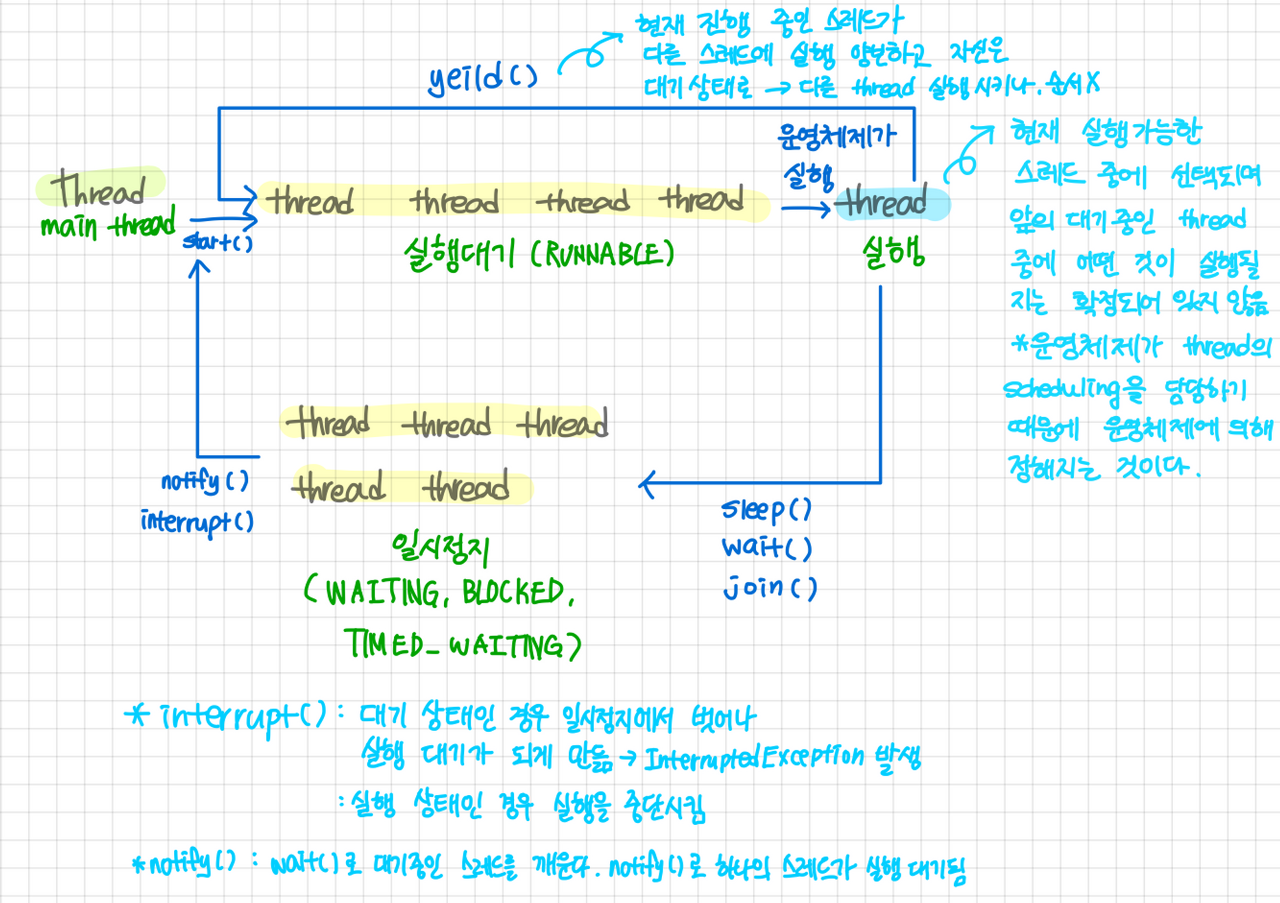 현재 진행 중인 스레드가
다른 스레드에 실행 양보하고 자신은
대기상태로 → 다른 thread 실행시키나. 순서X
yeild()
운영체제가
실행
현재 실행가능한
스레드 중에 선택되며
앞의 대기중인 thread
중에 어떤 것이 실행될
지는 확정되어 있지 않음
*운영체제가 thread의
scheduling을 담당하기
때문에 운영체제에 의해
정해지는 것이다.
Thread
main thread
start()
thread thread thread thread
실행대기 (RUNNABLE)
thread
실행
thread thread thread
thread thread
일시정지
(WAITING, BLOCKED,
TIMED_WAITING)
notify()
interrupt()
sleep()
wait()
join()
* interrupt() : 대기 상태인 경우 일시정지에서 벗어나
실행 대기가 되게 만듦 → InterruptedException 발생
: 실행 상태인 경우 실행을 중단시킴
*notify() : wait()로 대기중인 스레드를 깨운다. notify()로 하나의 스레드가 실행 대기됨